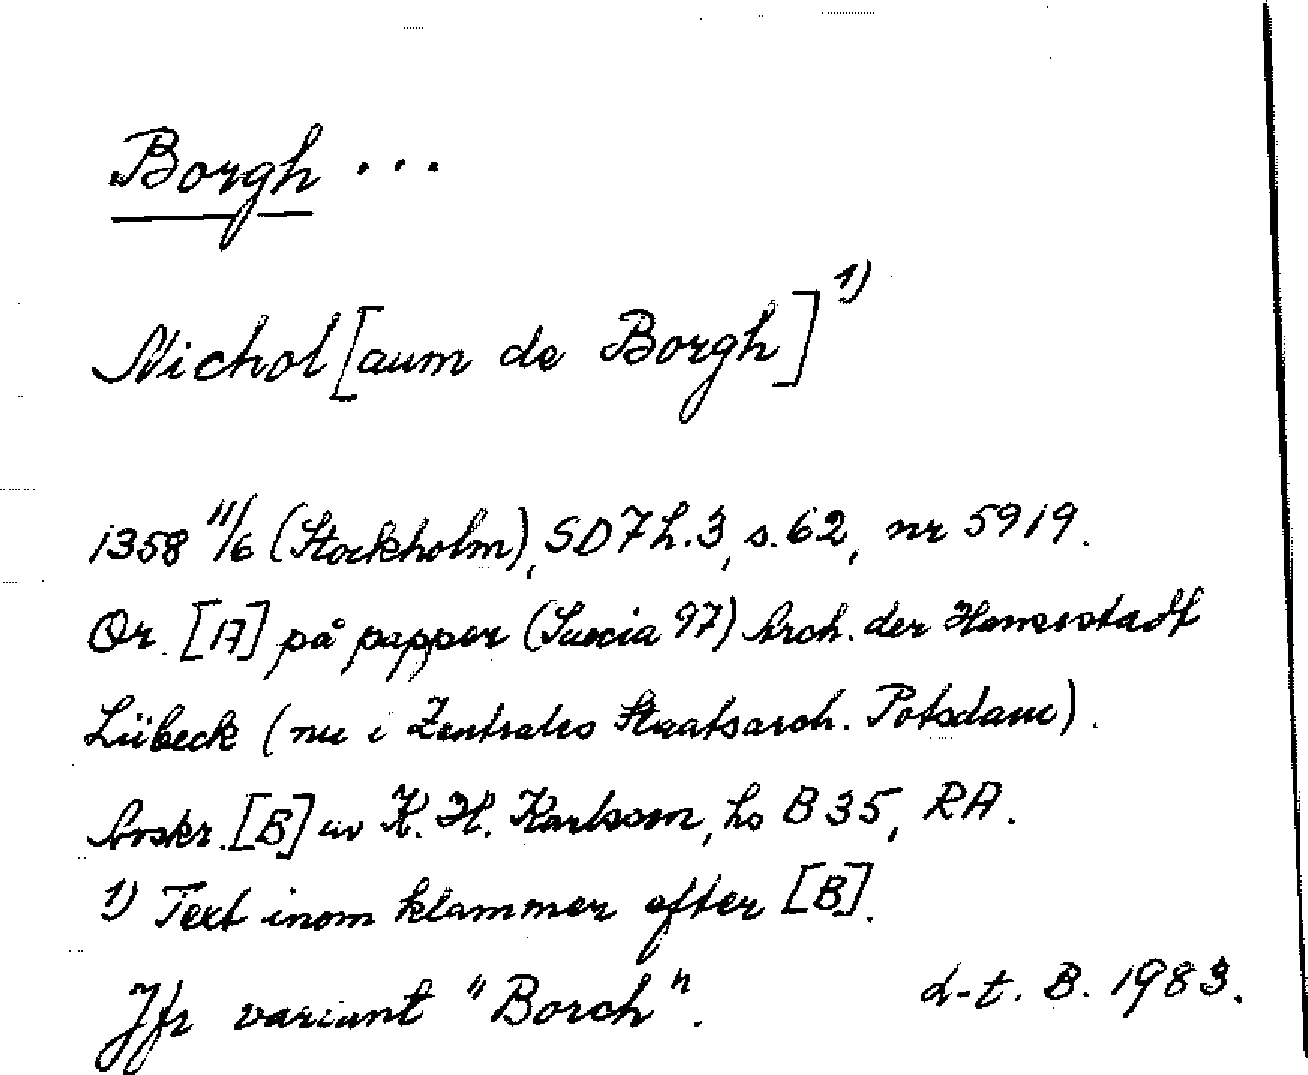 Borgh ...
Nichol[aum de Borgh] 1)
1358 11/6 (Stockholm), SD 7 h. 3, s. 62, nr 5919.
Or. [A] på papper (Suecia 97) Arch. der Hansestadt
Lübeck (nu i Zentrales Staatsarch. Potsdam).
Avskr. [B] av K. H. Karlsson, hs B 35, RA.
1) Text inom klammer efter [B].
Jfr variant "Borch".
L-t. B. 1983.